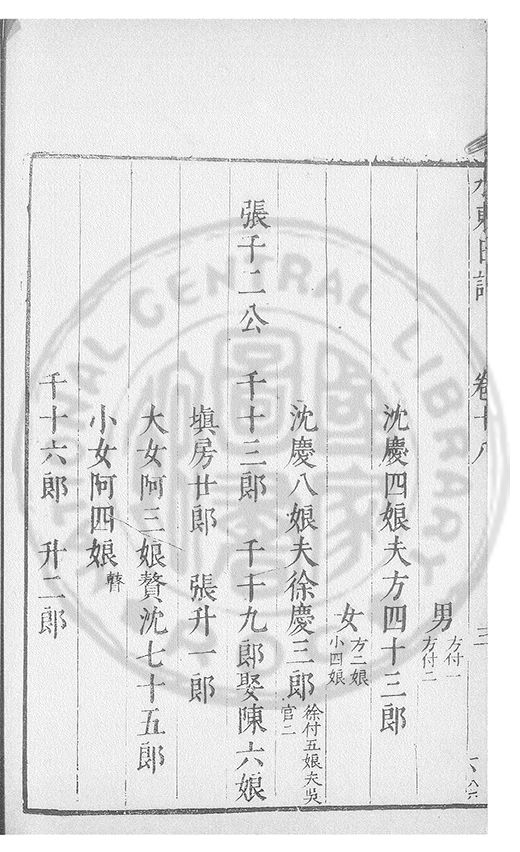 水東日記 卷十八 三
男 方付一 方付二
沈慶四娘夫方四十三郎
女 方二娘 小四娘
沈慶八娘夫徐慶三郎 徐付五娘夫吳官二
張千二公 千十三郎 千十九郎娶陳六娘
塡房廿郎 張升一郎
大女阿三娘贅沈七十五郎
小女阿四娘
千十六郎 升二郎
NATIONAL CENTRAL LIBRARY
國家圖書館